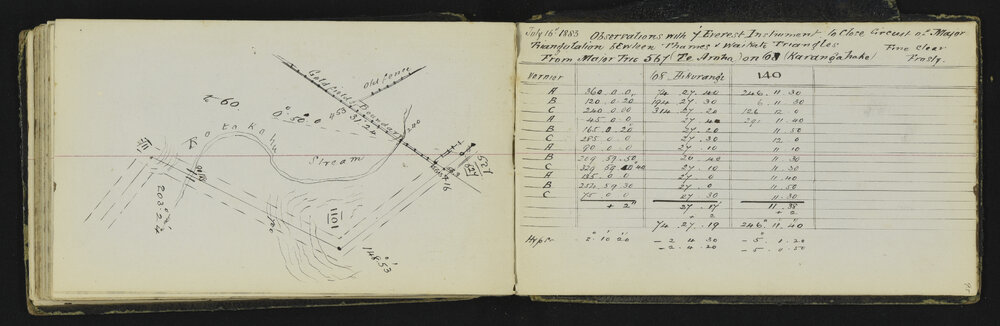 Goldfields Boundary
Old fence
to 60
0° 50' 0
453 31.24
Stream
200
521
627
16
III
203.24
1101
148.53
July 16th 1883 Observations with 7" Everest Instrument to Close Circuit of Major
Triangulation between Thames & Waikato Triangles
Fine Clear
From Major Trig 567 (Te Aroha) on 68 (Karangahake)
Frosty.
Vernier 08. Hikurangi 140
A 360. 0. 0. 74. 27. 40 246. 11. 30
B 120. 0. 20 194. 27. 30 6. 11. 30
C 240. 0. 00 314. 27. 20 126. 12. 0
A 45. 0. 0 27. 40 291. 11. 40
B 165. 0. 20 27. 20 11. 50
C 285. 0. 0 27. 30 12. 0
A 90. 0. 0 27. 10 11. 10
B 209. 59. 50 26. 40 11. 30
C 329. 59. 40 27. 10 11. 30
A 135. 0. 0 27. 0 11. 40
B 254. 59. 30 27. 0 11. 50
C 75. 0. 0 27. 30 11. 30
+ 2" 27. 17 11. 38
+ 2 + 2
74. 27. 19 246. 11. 40
Hyps - 2. 10. 20 - 2. 4. 30 - 5. 1. 20
- 2. 4. 20 - 5. 0. 50